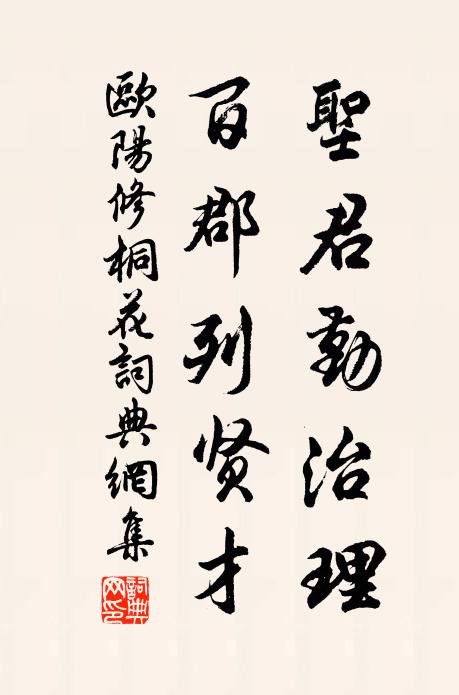 聖君勤治理
百郡列贤才
歐陽修桐花詞典網集
詞典網印